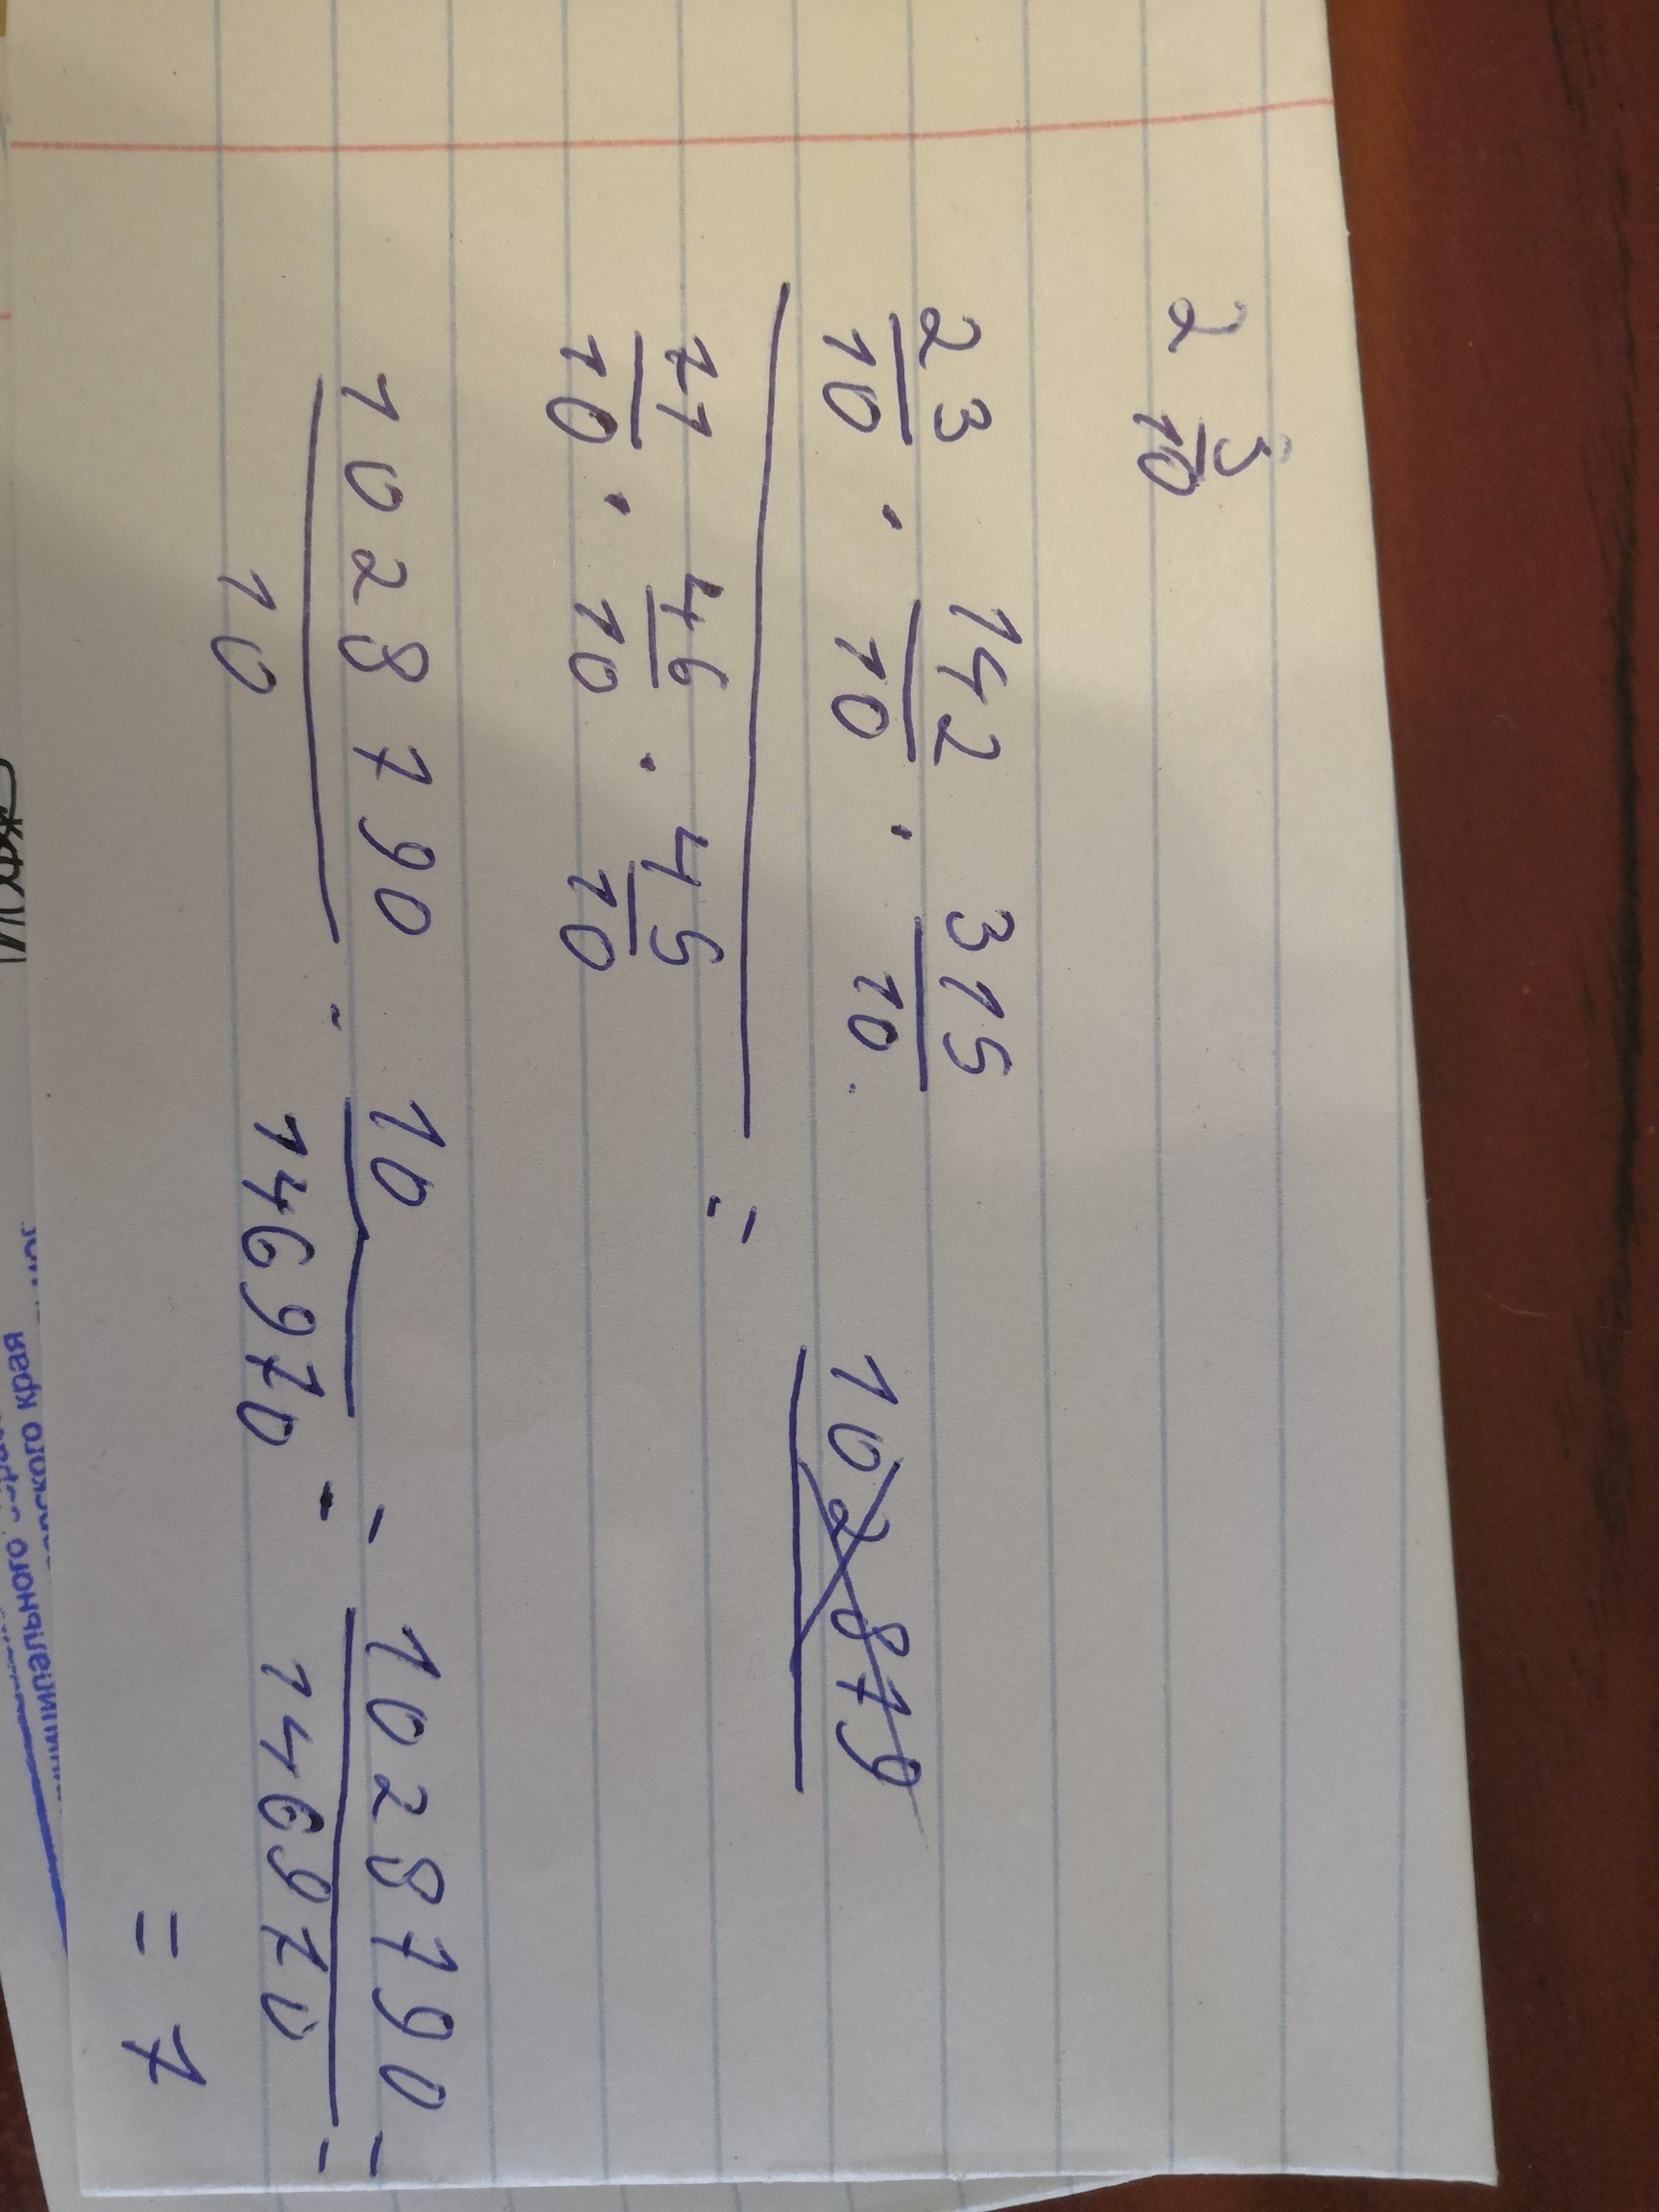 2 3/10
23/10 · 142/10 · 315/10
71/10 · 46/10 · 45/10 =
1028790/10 · 10/146970 = 1028790/146970 =
= 7
пального
рского края